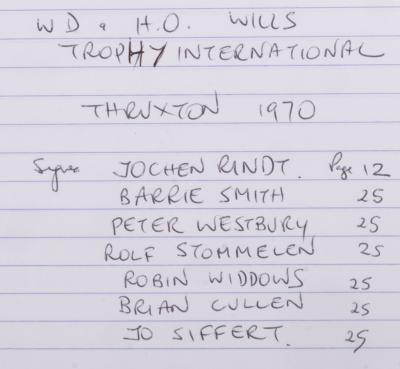 W D & H.O. WILLS
TROPHY INTERNATIONAL
THRUXTON 1970
Signed JOCHEN RINDT. Page 12
BARRIE SMITH 25
PETER WESTBURY 25
ROLF STOMMELEN 25
ROBIN WIDDOWS 25
BRIAN CULLEN 25
JO SIFFERT. 25